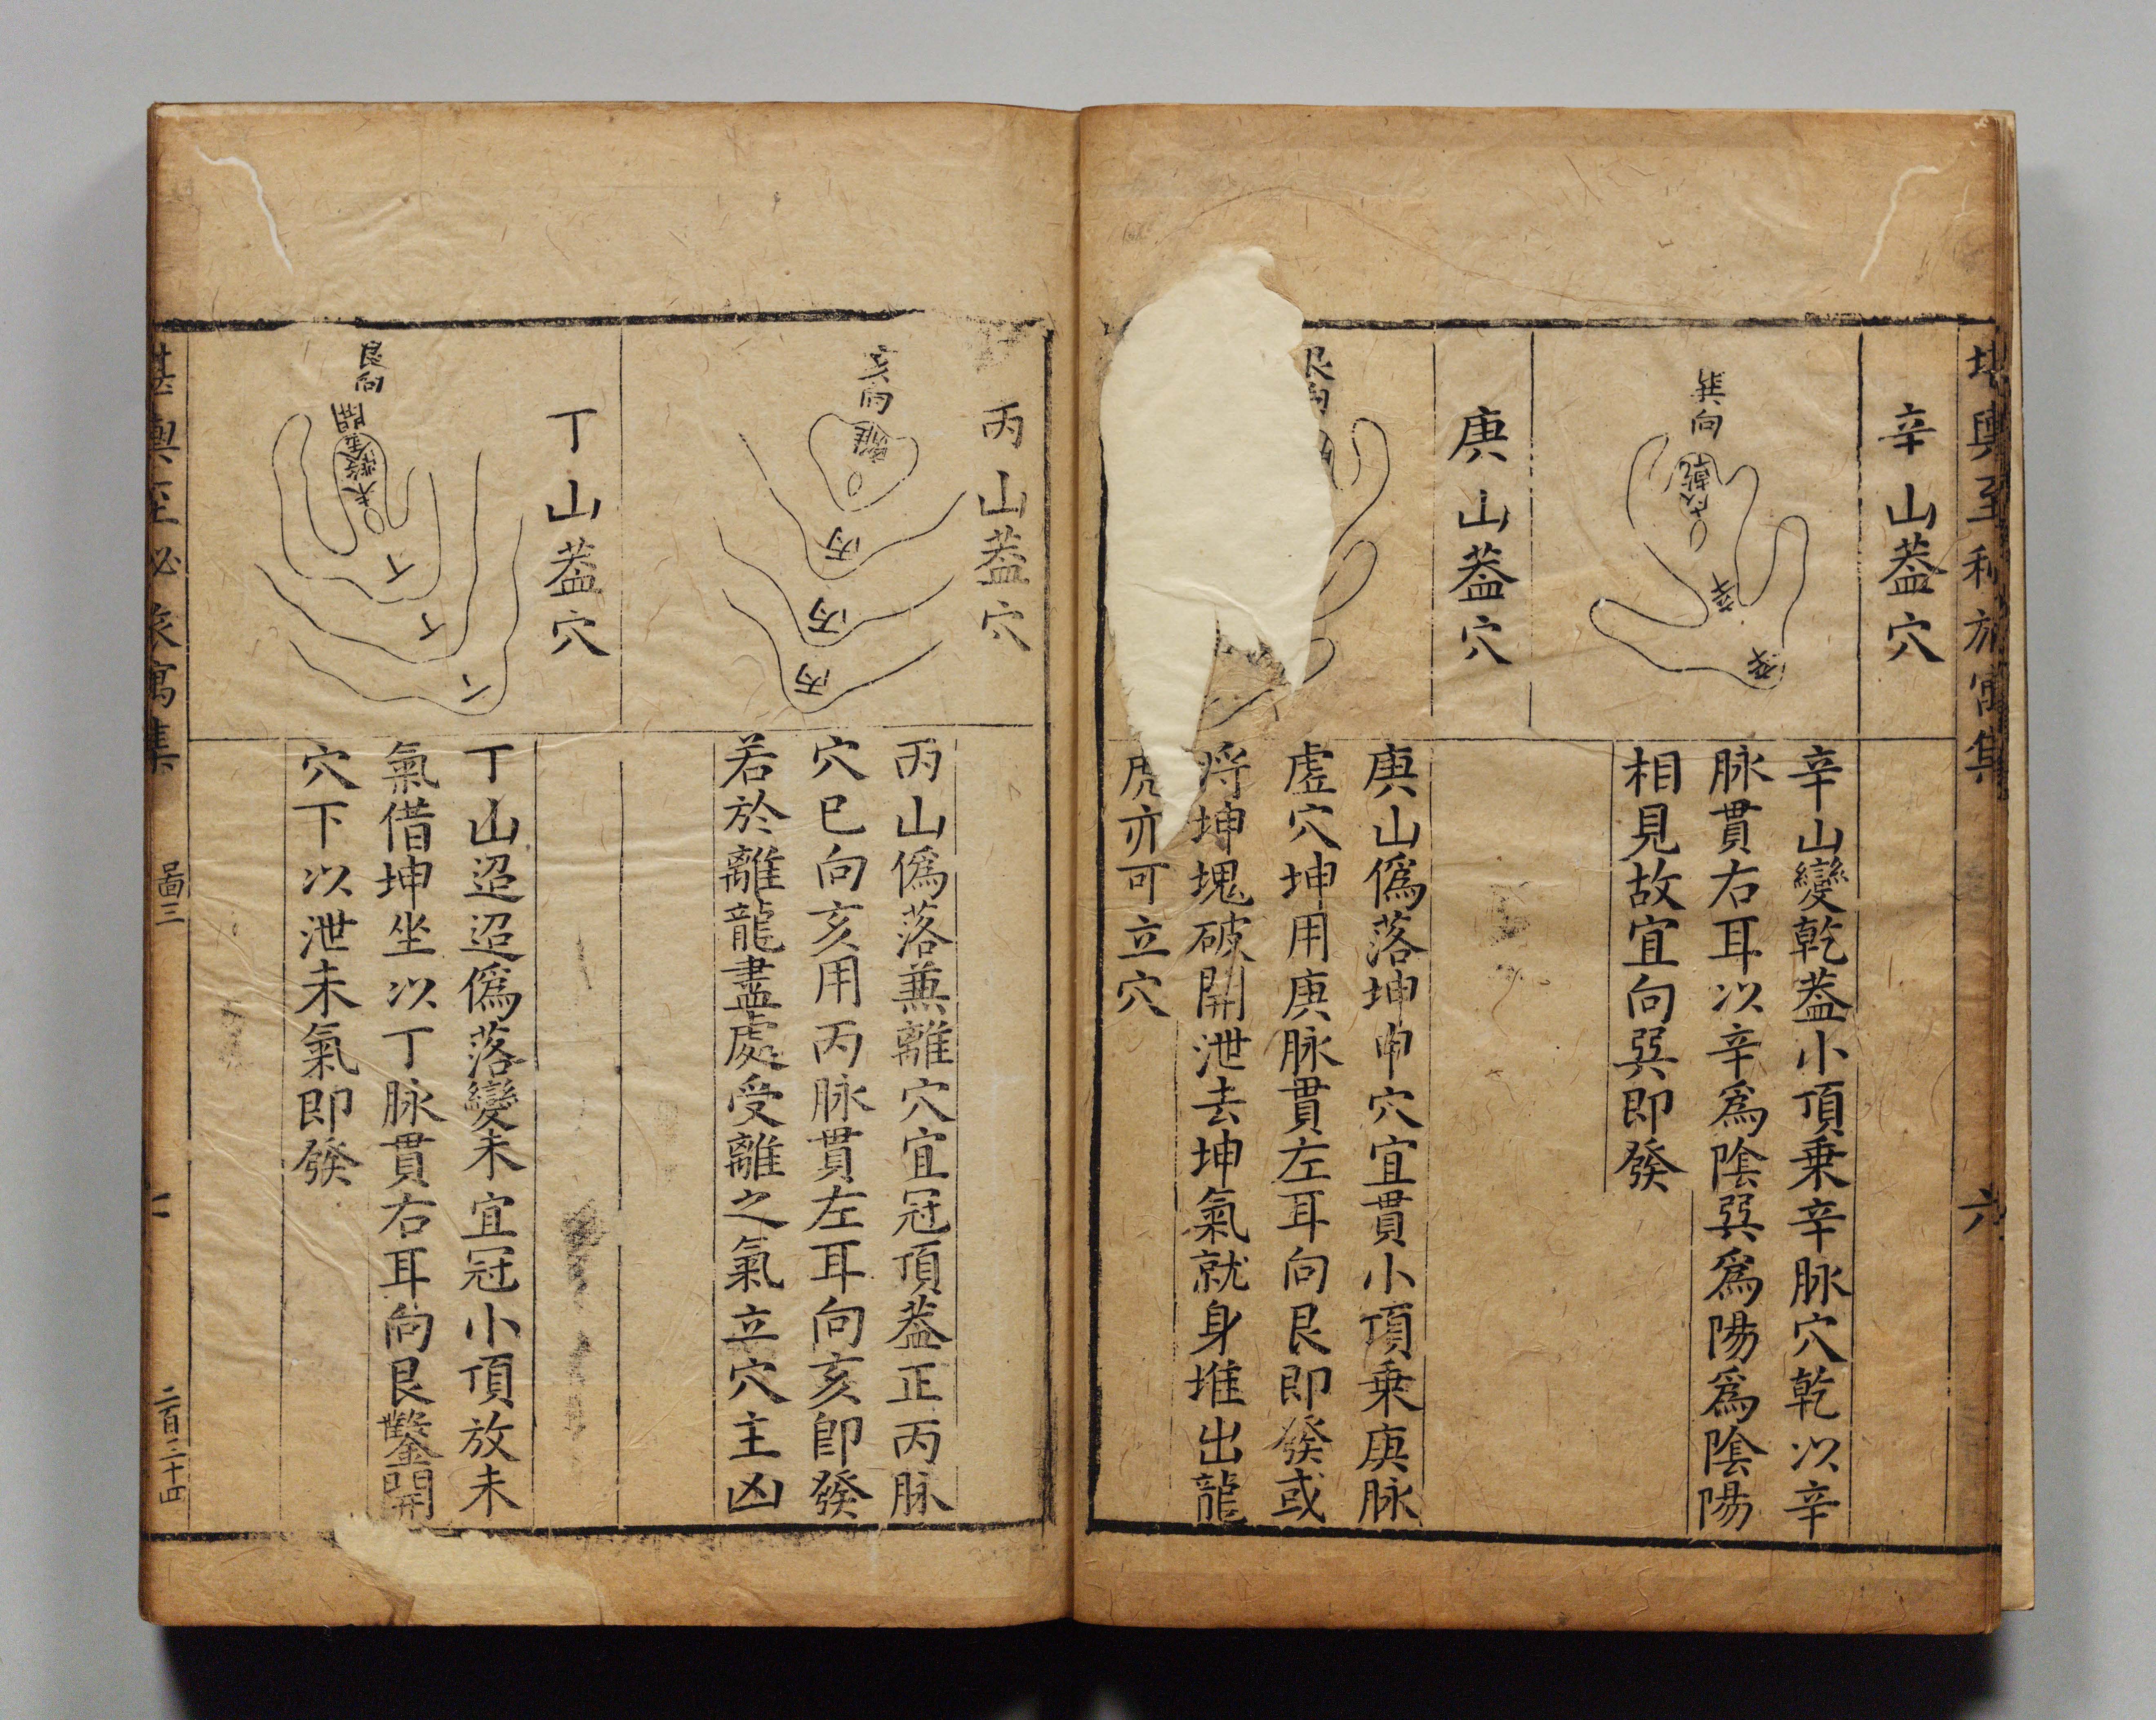 辛山葢穴
巽向
乾
戌
辛
辛山變乾葢小頂乗辛脉穴乾以辛
脉貫右耳以辛爲陰巽爲陽爲陰陽
相見故宜向巽即發
六
庚山葢穴
艮向
庚山僞落坤申穴宜貫小頂乗庚脉
虚穴坤用庚脉貫左耳向艮即發或
将坤塊破開泄去坤氣就身堆出龍
虎亦可立穴
丙山葢穴
亥向
離
丙
丙
丙
丙山僞落兼離穴宜冠頂葢正丙脉
穴巳向亥用丙脉貫左耳向亥即發
若於離龍盡處受離之氣立穴主凶
丁山葢穴
艮向
開
丁
丁
丁
丁山迢迢僞落變未宜冠小頂放未
氣借坤坐以丁脉貫右耳向艮鑿開
穴下以泄未氣即發
圖三
二百二十四